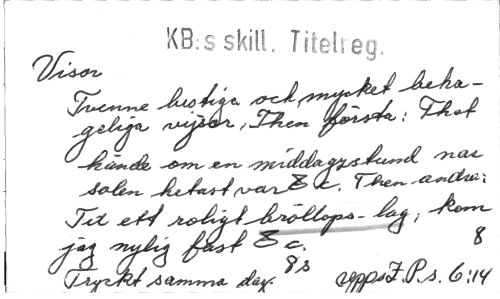 KB:s skill. Titelreg.
Visor
Tvenne lustiga och mycket beha-
geliga vijsor, Then första: Thet
hände om en middagzstund nar
solen hetast var & c. Then andra:
Til ett roligt bröllops-lag, kom
jag nylig fast & c. 8
Tryckt samma dag. 8s F.P.s. 6:14